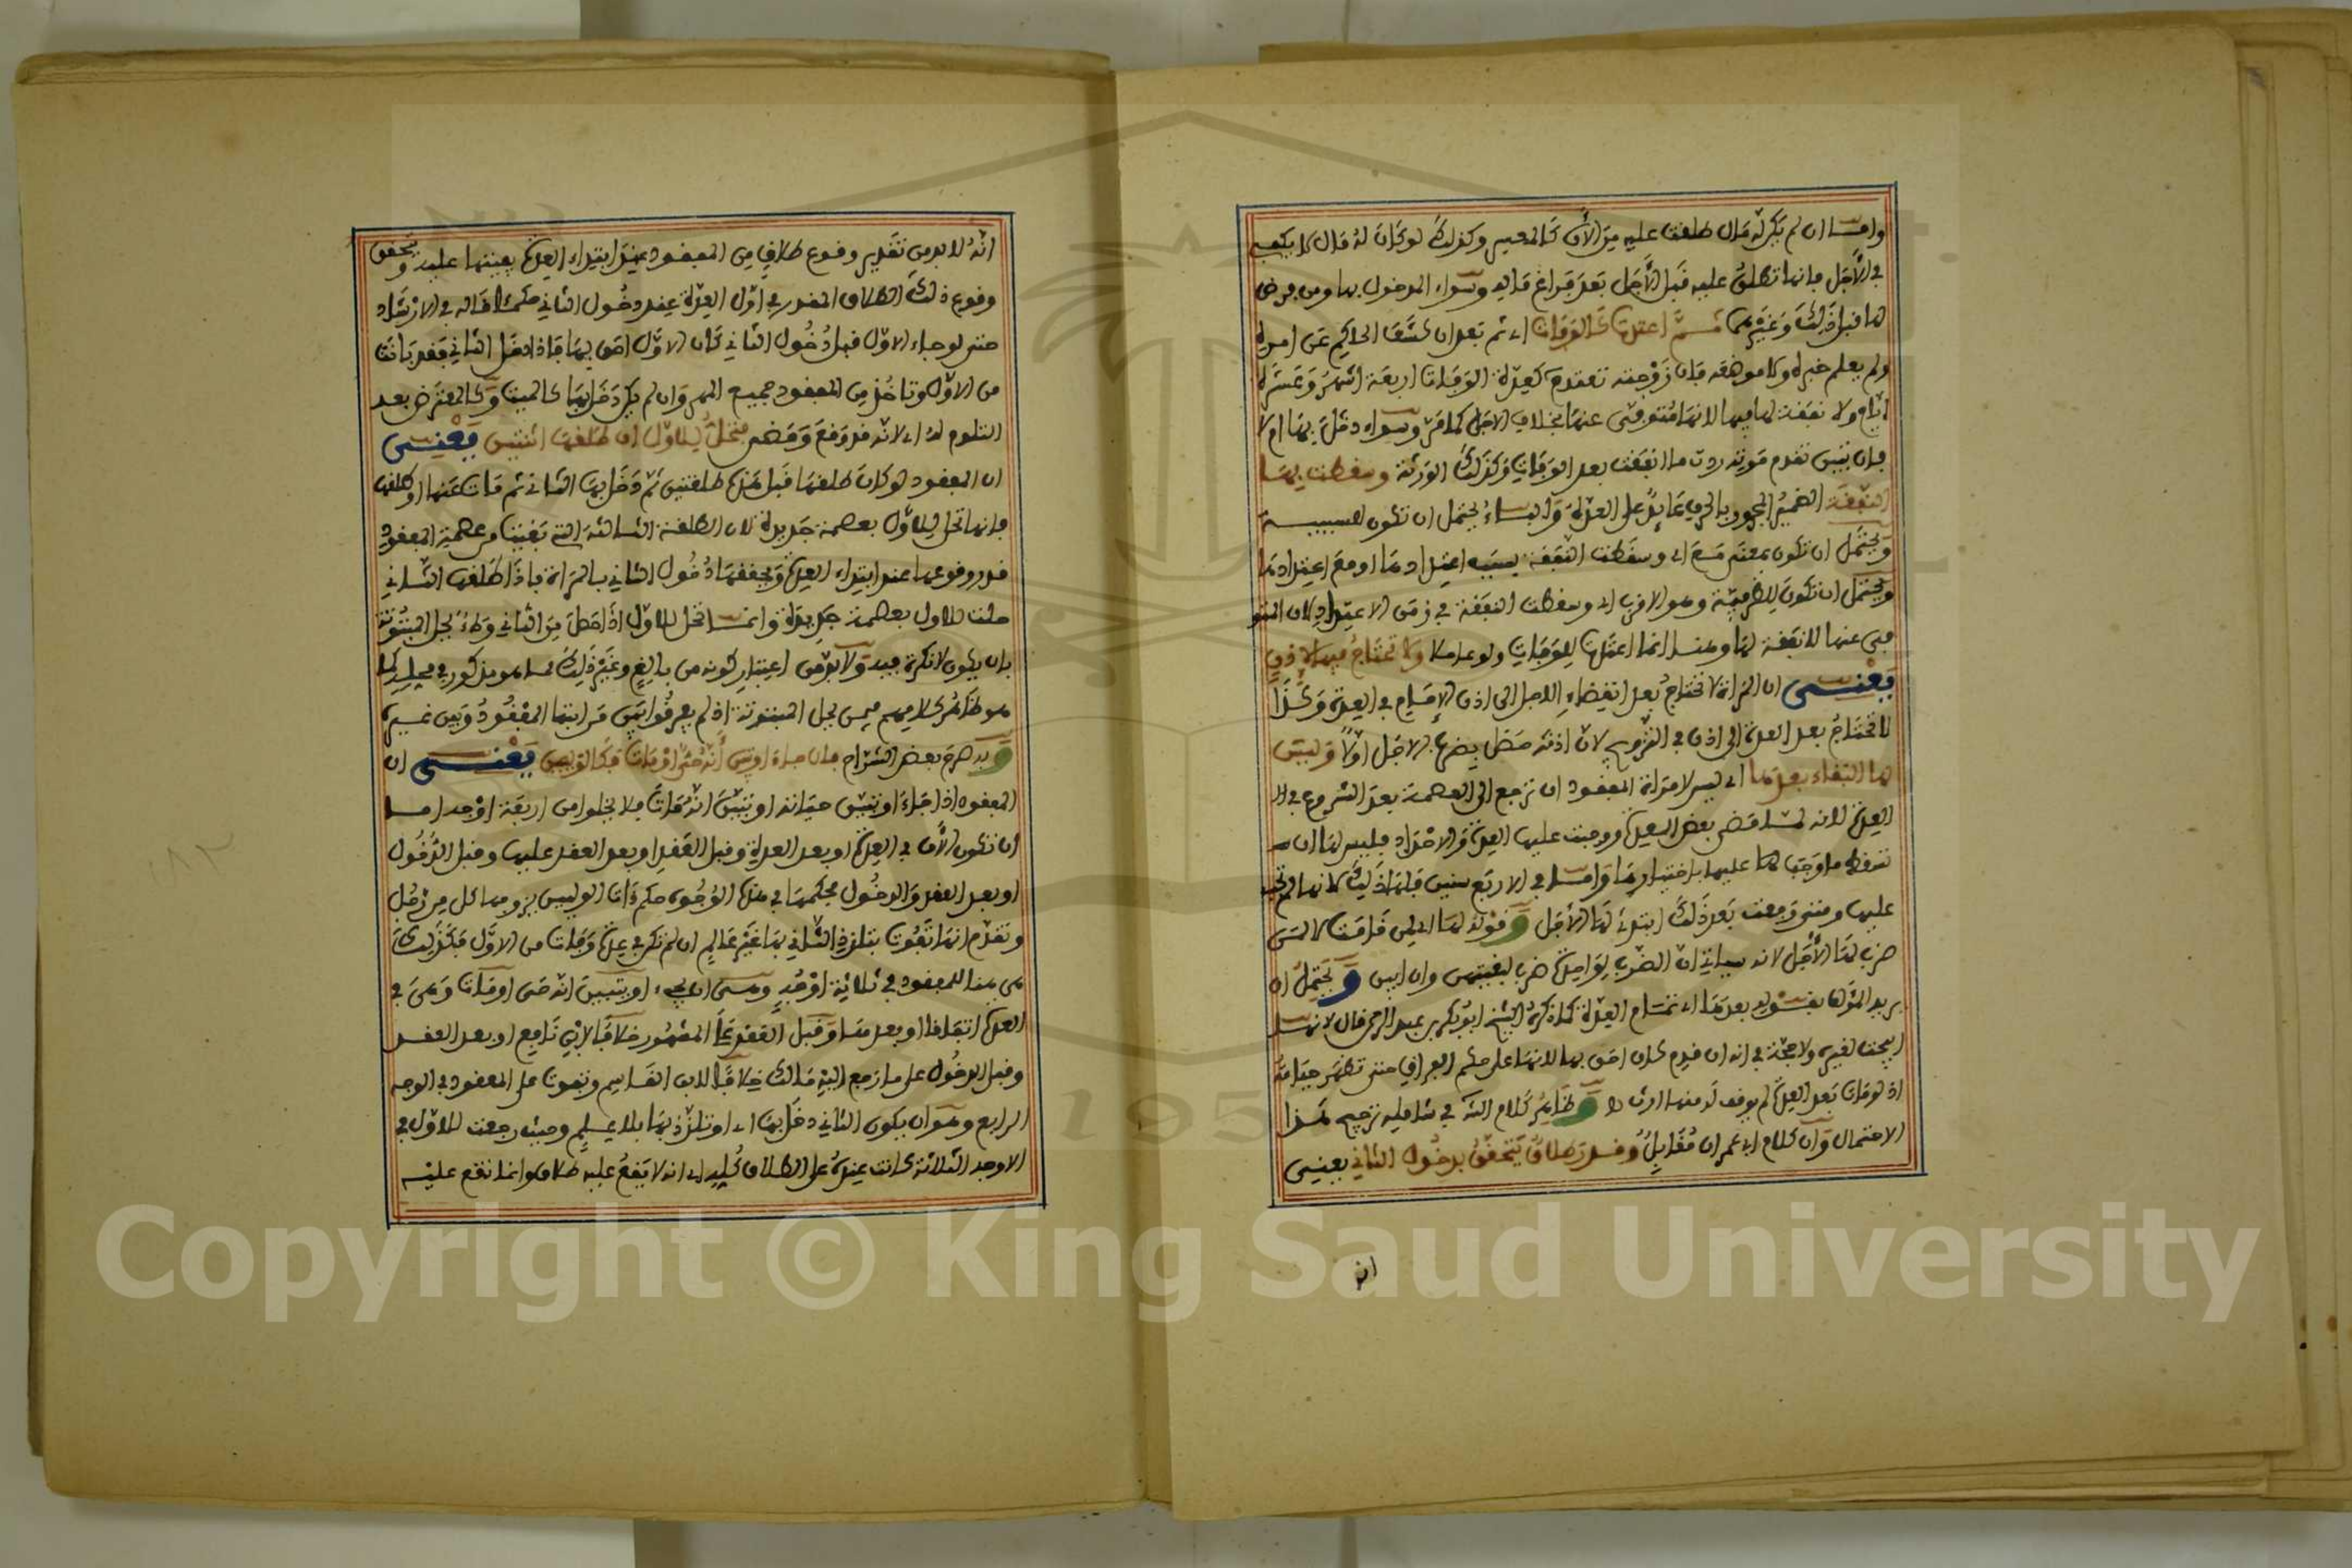 وامـا ان لم يكن له مال طلقت عليه من الأن كالمعسر وكذلك لو كان له مال لا يكفي
في الأجل فانها تطلق عليه قبل الأجل بعد فراغ ماله وسواء المدخول بها ومن فرض
لها قبل ذلك وغيرهما ثـم اعتدت كالوفاة اي ثم بعد ان كشف الحاكم عن امره
ولم يعلم خبره ولا موضعه فان زوجته تعتد كعدة الوفاة اربعة اشهر وعشرة
ايام ولا نفقة لها فيها لانها متوفى عنها بخلاف الاجل كما مر وسواء دخل بها ام لا
فان تبين تقدم موته ردت ما انفقت بعد الوفاة وكذلك الورثة وسقطت بهـا
النفقة الضمير المجرور بالحرف عايد على العدة والبـاء يحتمل ان تكون للسببيـة
ويحتمل ان تكون بمعنى مـع اي وسقطت النفقة بسبب اعتدادها او مع اعتدادها
ويحتمل ان تكون للظرفية وهو الاقرب اي وسقطت النفقة في زمن الاعتداد لان المتو
فى عنها لا نفقة لها وهنـا انما اعتدت للوفاة ولو حاملا ولا تحتاج فيها لاذن
يعنـي ان المراة لا تحتاج بعد انقضاء الاجل الى اذن الامام في العدة وكذا
لا تحتاج بعد العدة الى اذن في التزويج لان اذنه حصل بضرب الاجل اولا وليس
لها البقاء بعدها اي ليس لامراة المفقود ان ترجع الى العصمة بعد الشروع في ال
العدة لانه لمـا مضى بعض العدة ووجبت عليها العدة والاحداد فليس لها ان
تسقط ما وجب لها عليها باختيارها وامـا في الاربع سنين فلها ذلك لانها لم تجب
عليها ومتى رجعت بعد ذلك ابتدئ لها الأجل وقوله لها اي لمن قامت لا لمن
ضرب لها الأجل لانه سياتي ان الضرب لواحدة ضرب لبقيتهن وان ابين ويحتمل ان
يريد المؤلف بقـوله بعدها اي تمـام العدة كما ذكره الشيخ ابو بكر بن عبد الرحمن قال لانهـا
ابيحت لغيره ولا حجة في انه ان قدم كان احق بها لانها على حكم الفراق حتى تظهر حياته
اذ لو مات بعد العدة لم يوقف له منها ارث وظاهر كلام الشـ في شامله ترجيح هـذا
الاحتمال وان كلام ابي عمران مقابل وقـدر طلاق يتحقق بدخول الثاني يعنـي
انه
انه لا بد من تقدير وقوع طلاق من المفقود عند ابتداء العدة يفيتها عليه ويتحقق
وقوع ذلك الطلاق المقدر في اول العدة عند دخول الثاني حكمـا قاله في الارشاد
حتى لو جاء الاول قبل دخول الثاني كان الاول احق بها فاذا دخل الثاني فقد بانت
من الاول وتاخذ من المفقود جميع المهر وان لم يكن دخل بها كالميت وكالمعترض بعد
التلوم له اي لانه قد وقع ومضى فتحل للاول ان طلقها اثنتين يعنـي
ان المفقود لو كان طلقها قبل هذه طلقتين ثم دخل بها الثاني ثم مات عنها او طلقها
فانها تحل للاول بعصمة جديدة لان الطلقة الثـالثة التي بقيت من عصمة المفقود
قدر وقوعها عند ابتداء العدة ويحققها دخول الثاني بالمراة فاذا طلقها الثـاني
حلت للاول بعصمة جديدة وانمـا تحل للاول اذا حصل من الثاني وطء يحل المبتوتة
بان يكون لا نكرة فيه ولا بد من اعتبار كونه من بالغ وغير ذلك ممـا هو مذكور في محله كما
هو ظاهر كلامهم فيمن يحل المبتوتة اذ لم يفرقوا بين من ابتها المفقود وبين غيره
وبه صرح بعض الشراح فان جاء او تبين أنه حي او مات فكالوليين يعنـي ان
المفقود اذا جاء او تبين حياته او تبين انه مات فلا يخلوا من اربعة اوجه امـا
ان تكون الأن في العدة او بعد العدة وقبل العقد او بعد العقد عليها وقبل الدخول
او بعد العقد والدخول فحكمها في هذه الوجوه حكم ذات الوليين يزوجها كل من رجل
وتقدم انها تفوت بتلذذ الثـاني بها غير عالم ان لم تكن في عدة وفات من الاول فكذلك
هي هنا للمفقود في ثلاثة اوجه وهـي ان يجيء او يتبين انه حي او مات وهي في
العدة اتفاقا او بعدهـا وقبل العقد على المشهور خلافا لابن نافع او بعد العقـد
وقبل الدخول على ما رجع اليه مالك خلافا لابن القـاسم وتفوت على المفقود في الوجه
الرابع وهـو ان يكون الثاني دخل بها اي او تلذذ بها بلا علم وحيث رجعت للاول في
الاوجه الثلاثة كانت عنده على الطلاق كله اي انه لا يقع عليه طلاق وانما تقع عليـه